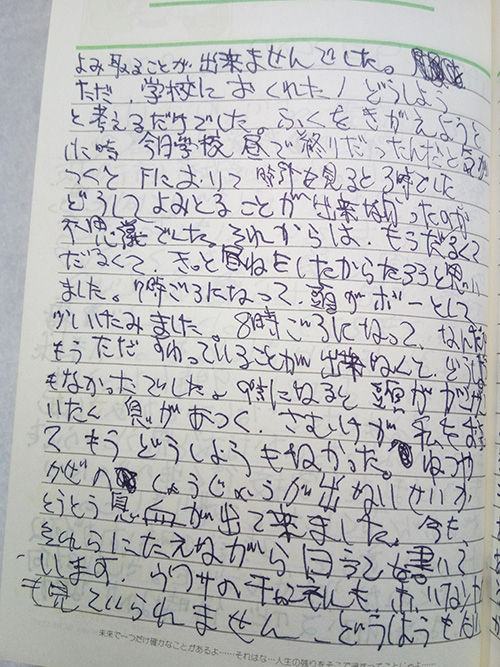 よみ取ることが出来ませんでした。
ただ、学校におくれた！どうしよう
と考えるだけでした。ふくをきがえようと
した時 今日学校 昼で終りだったんだと気が
つくと 下におりて 時計を見ると 3時でした
どうして よみとることが出来なかったのか
不思議でした。それからは、もうだるくて
だるくて、きっと昼ねをしたからだろうと思い
ました。7時ごろになって、頭がボーとして
少しいたみました。8時ごろになって、なんだ
もう ただ すわっていることが 出来なくて、どうし
もなかったでした。9時にねると 頭が
いたく 息があつく、さむけが 私を
て もう どうしようもなかった。 ねつや
かぜの しょうじょうが出ないせいか
とうとう 鼻血が出て来ました。今も
それらにたえながら 日うを書いて
います。
も見ていられません どうしようもない
未来で一つだけ確かなことがあるよ……それはな…人生の残りをそこで